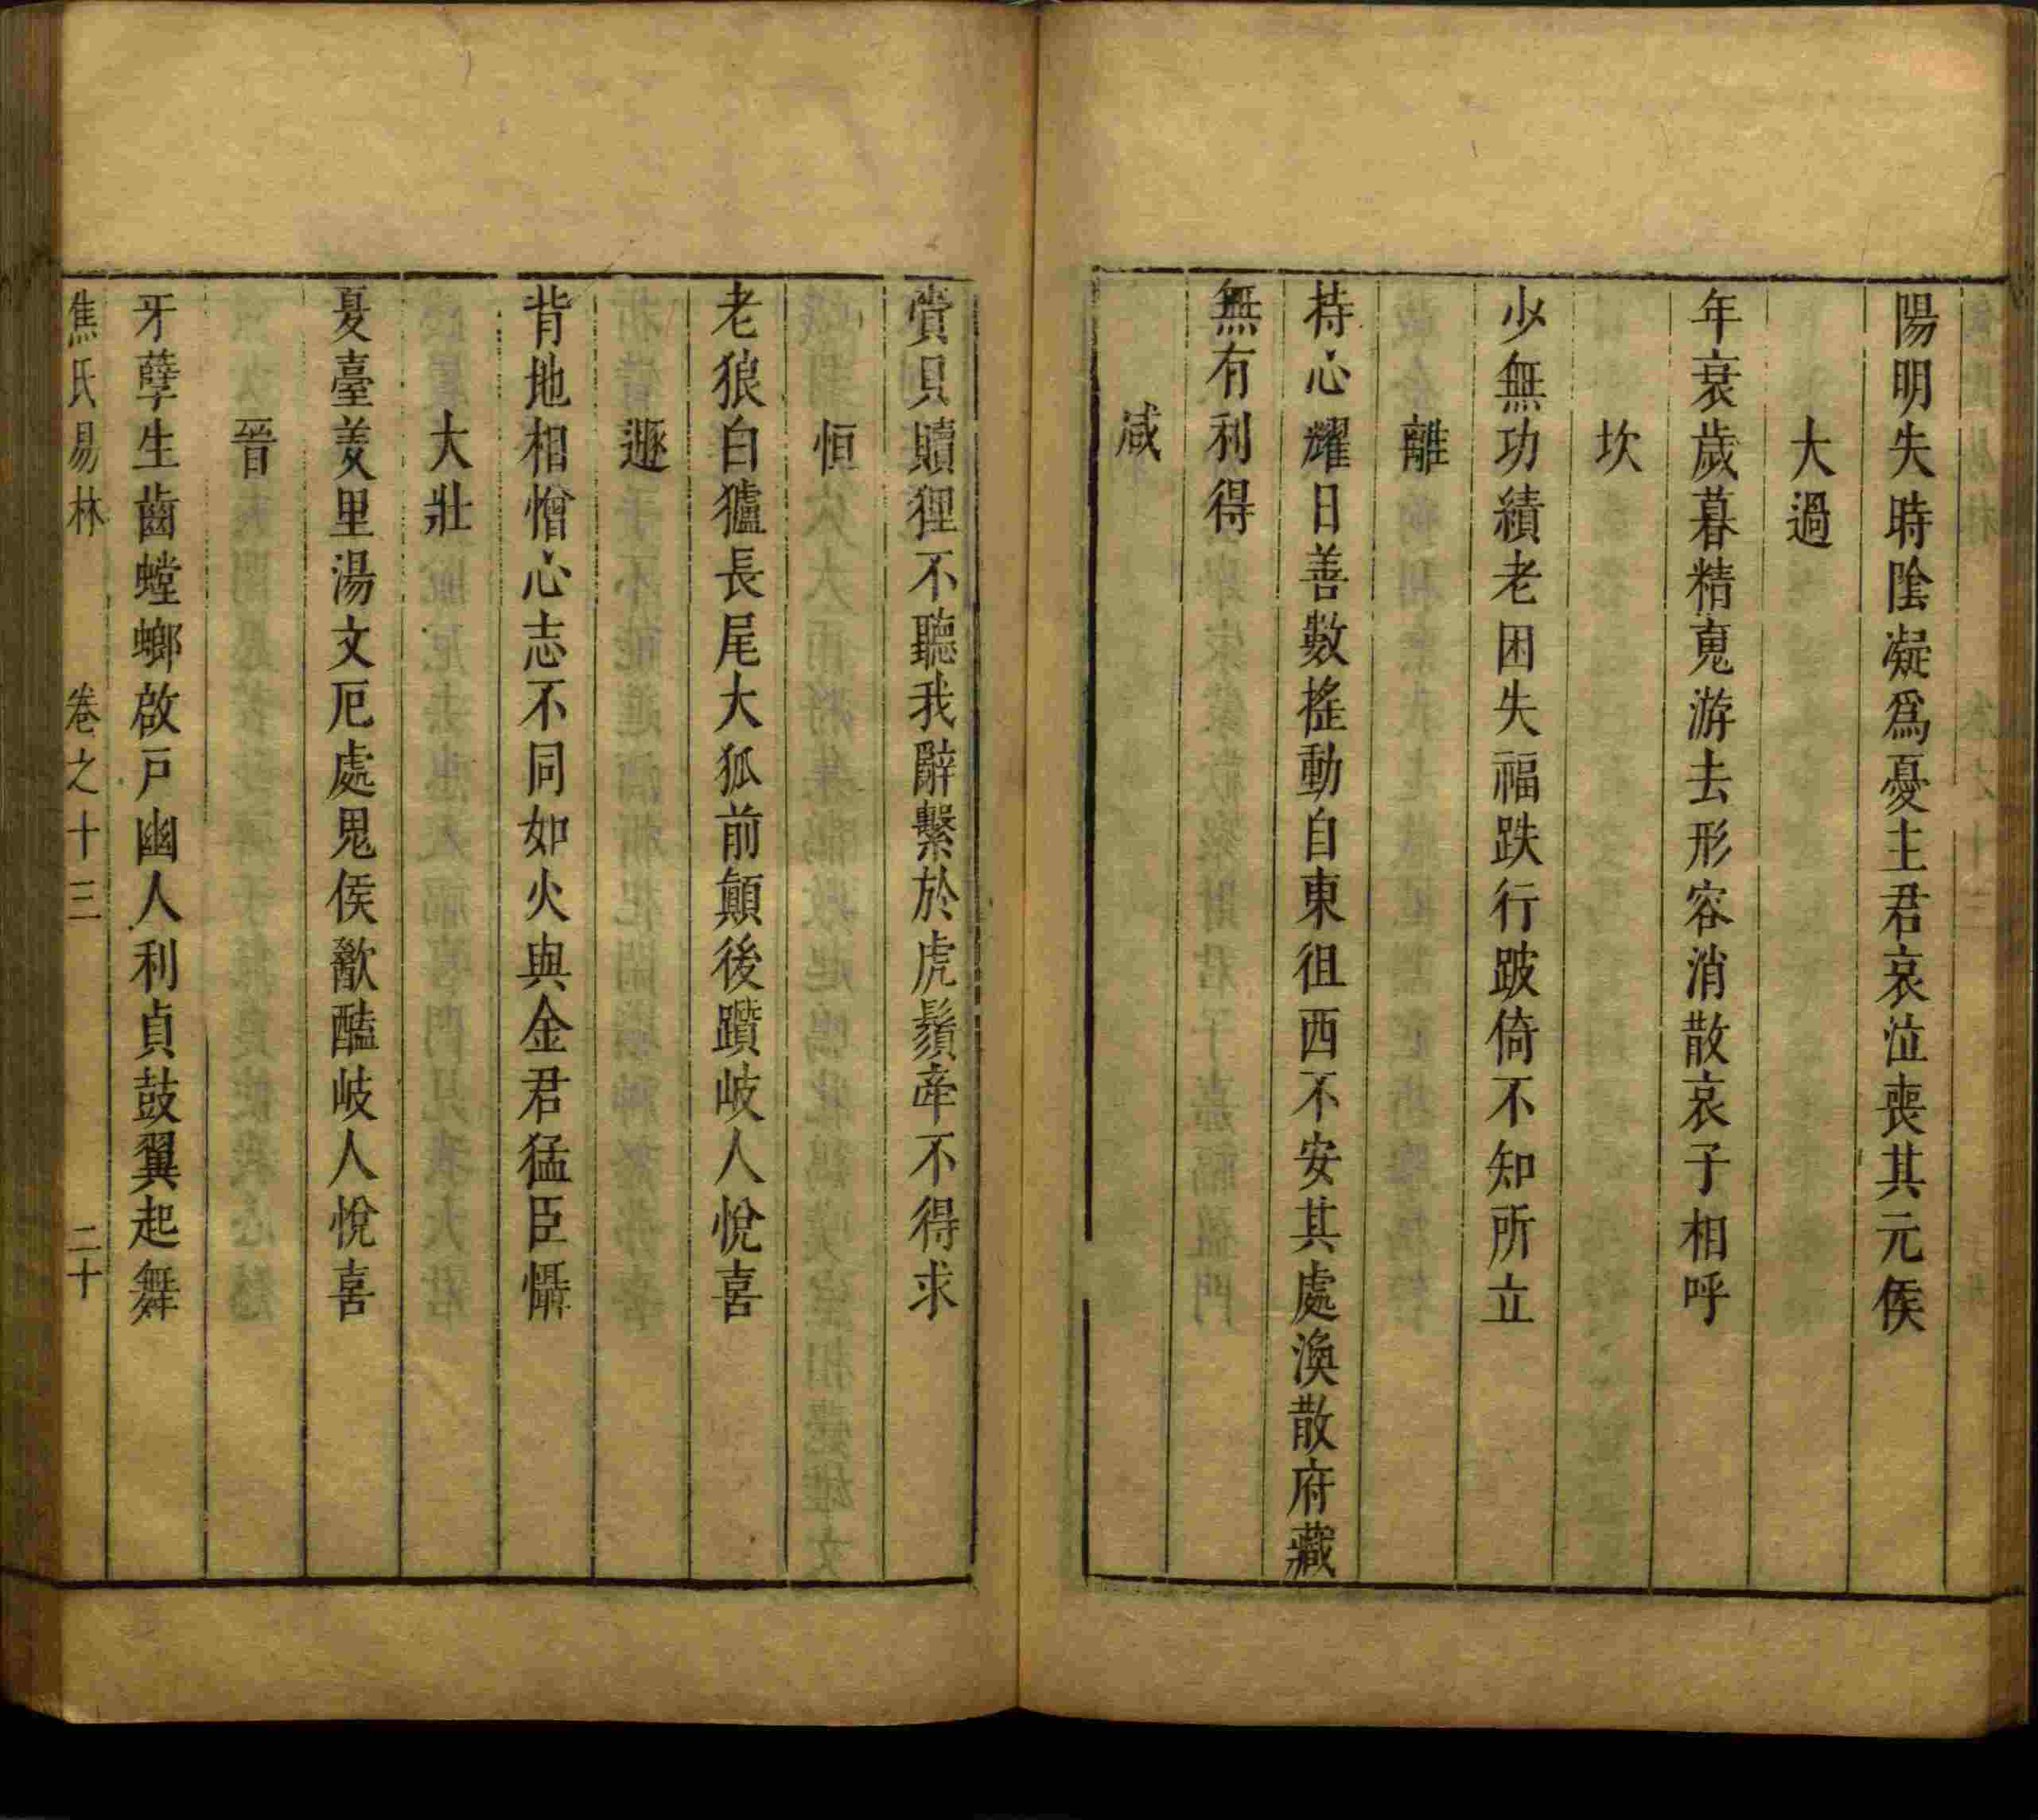 陽明失時陰凝爲憂主君哀泣喪其元侯
大過
年衰歲暮精䰟游去形容消散哀子相呼
坎
少無功績老困失福跌行跛倚不知所立
離
持心耀日善數搖動自東徂西不安其處渙散府藏
無有利得
咸
賞貝贖狸不聽我辭繫於虎鬚牽不得求
恒
老狼白獹長尾大狐前顛後躓岐人悅喜
遯
背地相憎心志不同如火與金君猛臣懾
大壯
夏臺羑里湯文厄處鬼侯歠醢岐人悅喜
晉
牙孽生齒螳螂啟戶幽人利貞鼓翼起舞
焦氏易林 卷之十三 二十